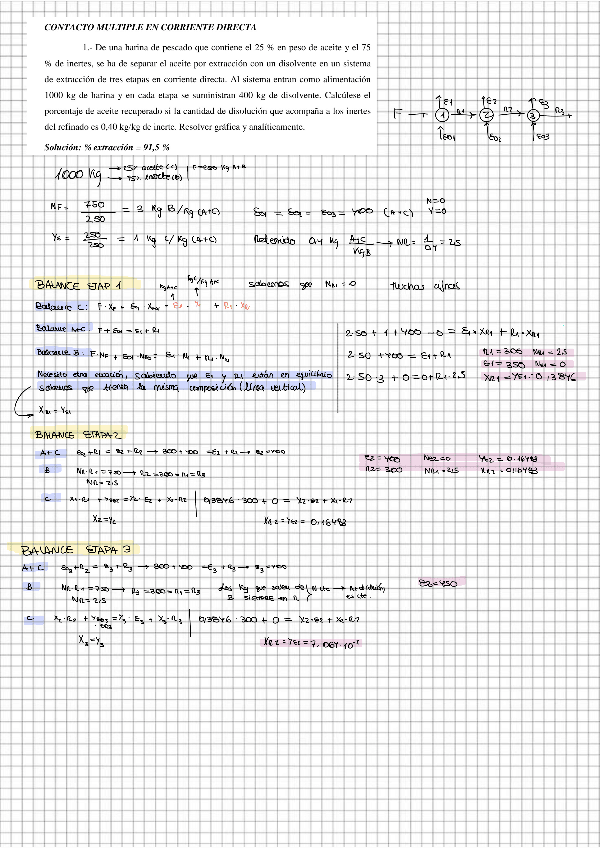 CONTACTO MULTIPLE EN CORRIENTE DIRECTA
1.- De una harina de pescado que contiene el 25 % en peso de aceite y el 75
% de inertes, se ha de separar el aceite por extracción con un disolvente en un sistema
de extracción de tres etapas en corriente directa. Al sistema entran como alimentación
1000 kg de harina y en cada etapa se suministran 400 kg de disolvente. Calcúlese el
porcentaje de aceite recuperado si la cantidad de disolución que acompaña a los inertes
del refinado es 0,40 kg/kg de inerte. Resolver gráfica y analíticamente.
Solución: % extracción = 91,5 %
E1 E2 E3
F 1 R1 2 R2 3 R3
E01 E02 E03
1000 Kg → 25% aceite (C) F=250 Kg A+B
→ 75% inerte (B)
NF = 750/250 = 3 Kg B/Kg (A+C) E01 = E02 = E03 = 400 (A+C) N=0 Y=0
YF = 250/250 = 1 Kg C/Kg (A+C) Retenido 0,4 Kg A+C/KgB → NR = 1/0,4 = 2,5
BALANCE ETAP 1 Kg A+C Kg C/Kg A+C sabemos que NE1 = 0
Balance C: F · XF + E01 · X01 = E1 · Y1 + R1 · XR1
Balance A+C: F + E01 = E1 + R1 250 · 1 + 400 · 0 = E1 · XR1 + R1 · XR1
Balance B: F·NF + E01 · NE0 = E1 · N1 + R1 · NR1 250 + 400 = E1 + R1 R1 = 300 NR1 = 2,5
Necesito otra ecuación, sabiendo que E1 y R1 están en equilibrio 250 · 3 + 0 = 0 + R1 · 2,5 E1 = 350 NE1 = 0
sabemos que tienen la misma composición (línea vertical) XR1 = YE1 = 0,3846
XR1 = YE1
BALANCE ETAPA 2
A+C E02 + R1 = E2 + R2 → 300 + 400 = E2 + R2 → E2 = 400 E2 = 400 NE2 = 0 YE2 = 0,16483
B NR · R1 = 750 → R2 = 300 = R1 = R3 R2 = 300 NR2 = 2,5 XR2 = 0,16483
NR = 2,5
C X1 · R1 + YE02 = Y2 · E2 + X2 · R2 0,3846 · 300 + 0 = X2 · E2 + X2 · R2
X2 = Y2 XR2 = YE2 = 0,16483
BALANCE ETAPA 3
A+C E03 + R2 = E3 + R3 → 300 + 400 = E3 + R3 → E3 = 400
B NR · R1 = 750 → R3 = 300 = R1 = R3 Los Kg que salen de B siempre en R
NR = 2,5
C X2 · R2 + YE03 · E03 = Y3 · E3 + X3 · R3 0,3846 · 300 + 0 = X2 · E2 + X2 · R2
X3 = Y3